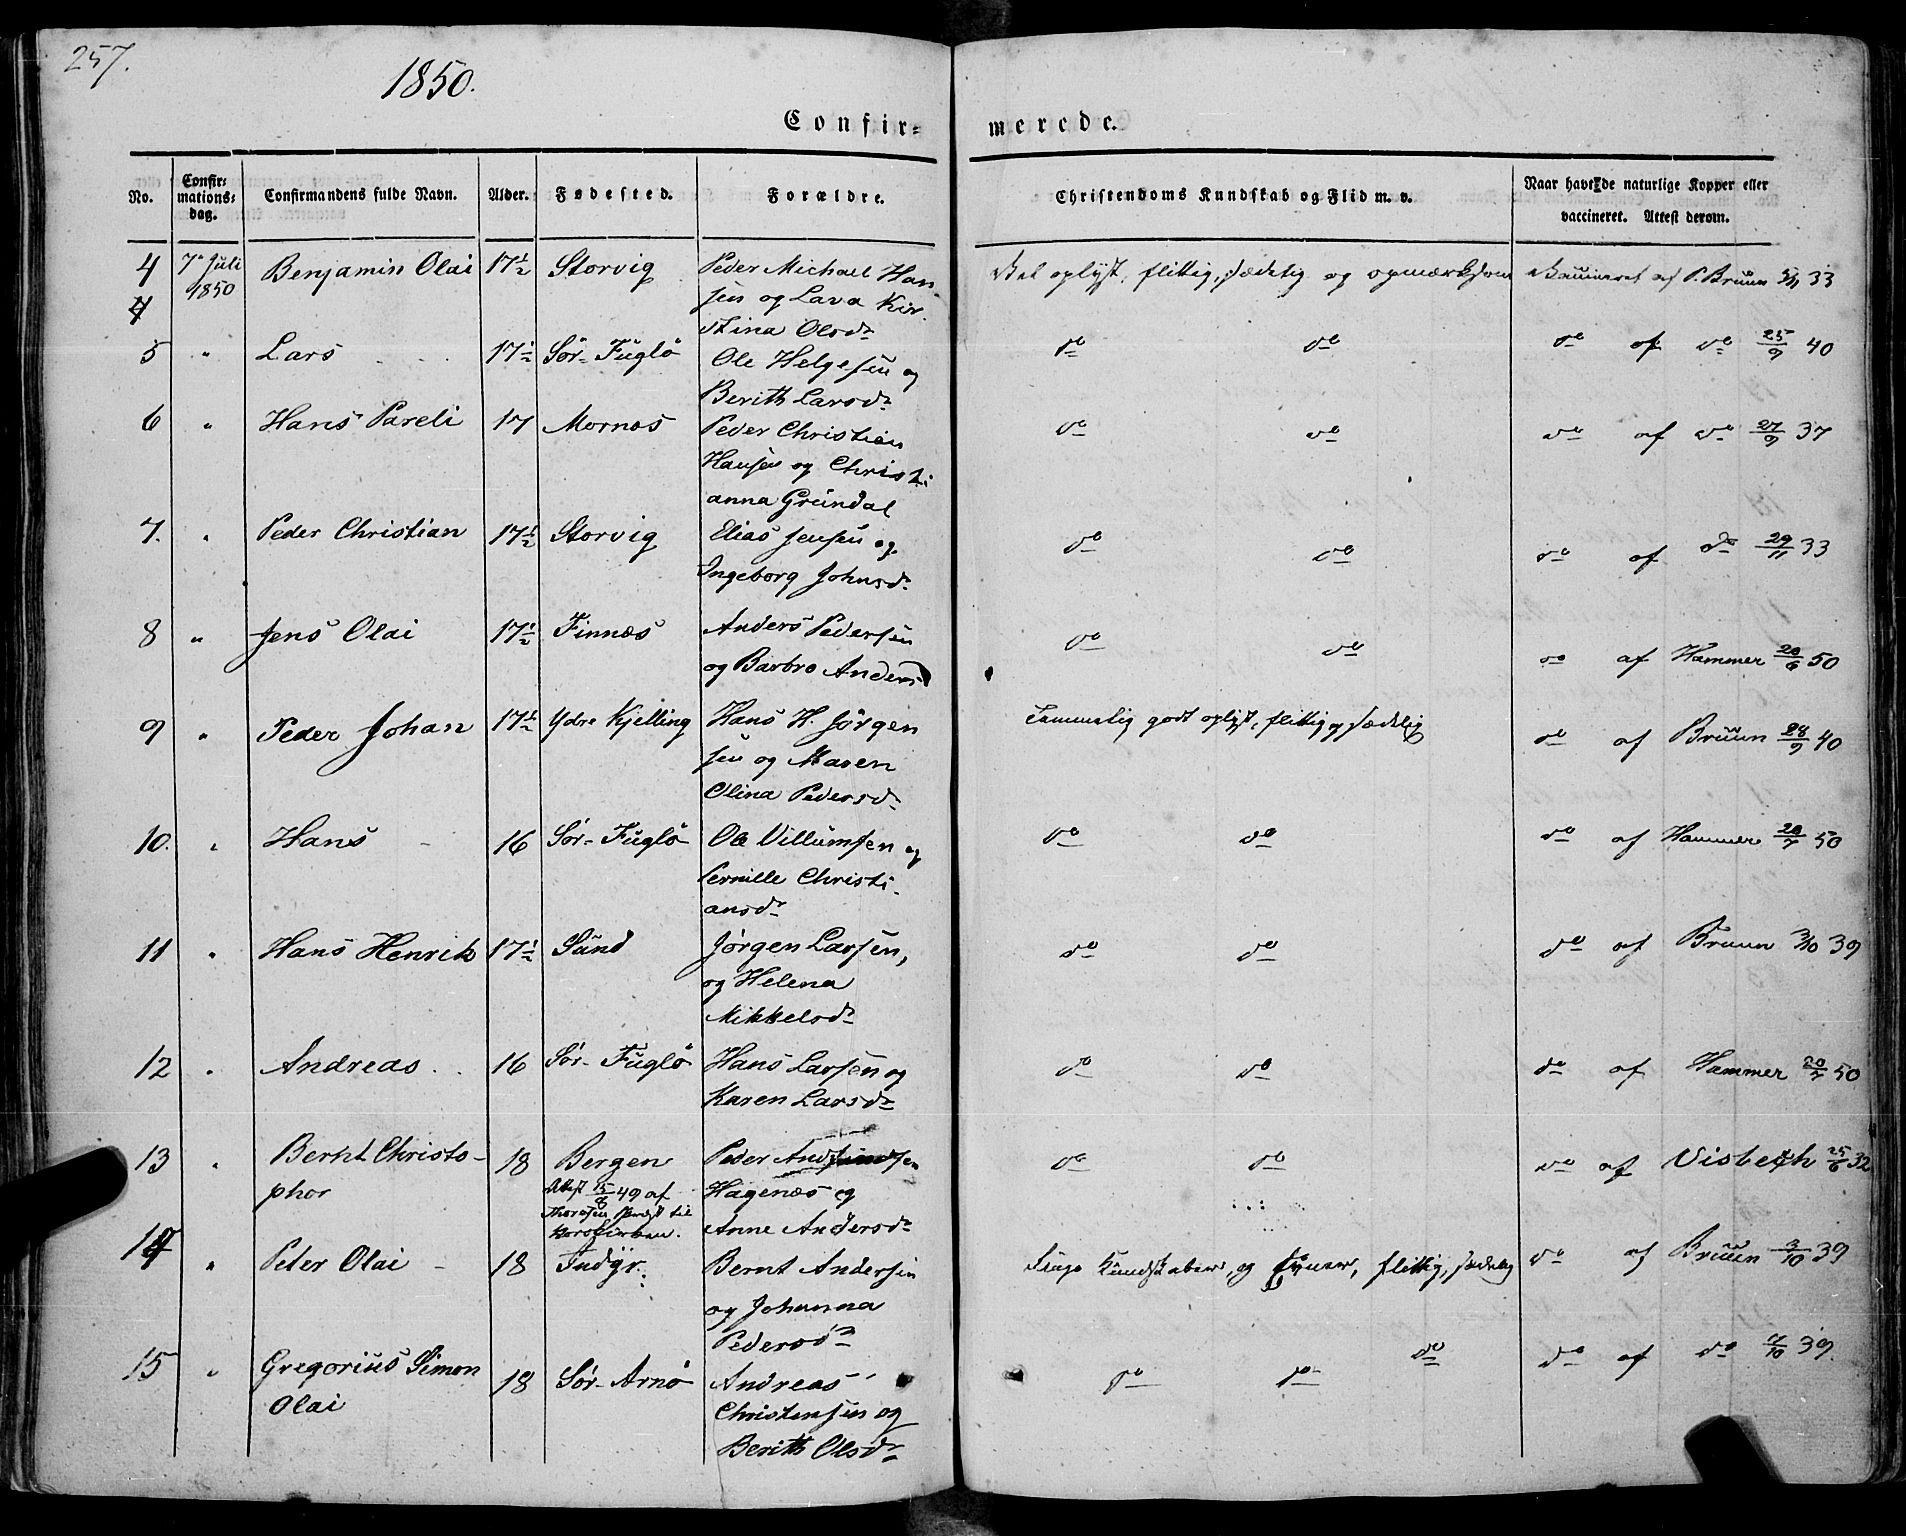 257.
1850.
Confir=
merede.
No.
Confir=
mations=
dag.
Confirmandens fulde Navn.
Alder.
Fødested.
Forældre.
Christendoms Kundskab og Flid m. v.
Naar havt de naturlige Kopper eller
vaccineret. Attest derom.
4 7de Juli 1850 Benjamin Olai 17½ Storvig Peder Michael Han
sen og Lava Kir
stina Olsdr
Vel oplyst, flittig, sædelig og opmærksom Vaccineret af P. Bruun 33
5 " Lars 17½ Sør-Fuglö Ole Helgesen og
Berith Larsdr
do do do af do 25/9 40
6 " Hans Pareli 17 Mornæs Peder Christian
Hansen og Christi
anna Gründal
do do do af do 27/9 37
7. " Peder Christian 17½ Storvig Elias Jensen og
Ingeborg Johnsdr
do do do af do 29/11 33
8 " Jens Olai 17½ Finnæs Anders Pedersen
og Barbro Anders
do do do af Hammer 50
9 " Peder Johan 17½ Ydre Kjelling Hans H. Jørgen
sen og Maren
Olina Pedersdr
Temmelig godt oplyst, flittig og sædelig do af Bruun 28/9 40
10. " Hans 16 Sør-Fuglö Ole Villumsen og
Pernille Christi-
ansdr
do do do af Hammer 50
11 " Hans Henrik 17½ Sund Jørgen Larsen,
og Helena
Mikkelsdr
do do do af Bruun 3/10 39
12 " Andreas 16 Sør-Fuglö Hans Larsen og
Karen Larsdr
do do do af Hammer 50
13 " Bernt Christo-
phor 18 Bergen
Attest 49 af
til
Korskirken.
Peder
Hagenæs og
Anne Andersdr
do do do af Visbech 25/6 32
14 " Peter Olai 18 Indyr: Bernt Andersen
og Johanna
Pedersdr
Kundskaber, og Evner, flittig, sædelig do af Bruun 3/10 39
15 " Gregorius Simon
Olai 18 Sør-Arnö Andreas
Christensen og
Berith Olsdr
do do do do af do 7/10 39.